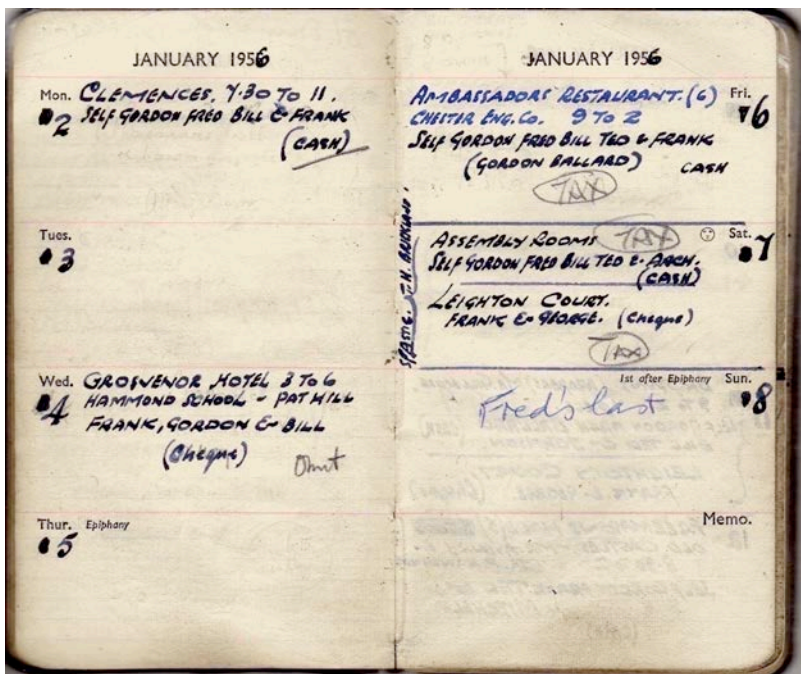 JANUARY 1956
Mon. CLEMENCES. 7.30 TO 11.
2 SELF GORDON FRED BILL & FRANK
(CASH)
Tues.
3
Wed. GROSVENOR HOTEL 3 TO 6
4 HAMMOND SCHOOL - PAT HILL
FRANK, GORDON & BILL
(Cheque) Omit
Thur. Epiphany
5
JANUARY 1956
AMBASSADORS RESTAURANT. (6) Fri.
CHESTER ENG. CO. 9 TO 2 6
SELF GORDON FRED BILL TED & FRANK
(GORDON BALLARD) CASH
TAX
ASSEMBLY ROOMS TAX Sat.
SELF GORDON FRED BILL TED & ARCH. 7
(CASH)
LEIGHTON COURT.
FRANK & GEORGE. (Cheque)
TAX
1st after Epiphany Sun.
Fred's last 8
Memo.